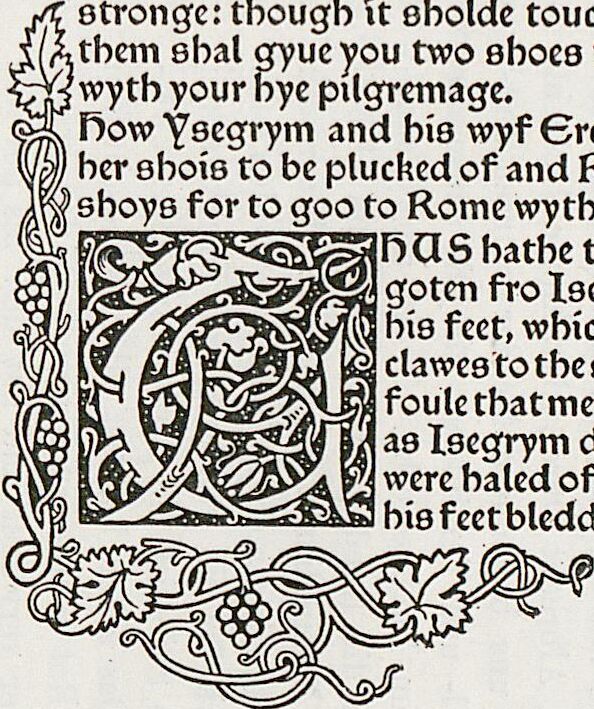 stronge: though it sholde touc
them shal gyue you two shoes
wyth your hye pilgremage.
How Ysegrym and his wyf Ere
her shois to be plucked of and R
shoys for to goo to Rome wyth
THUS hathe t
goten fro Ise
his feet, whic
clawes to the s
foule that me
as Isegrym d
were haled of
his feet bledd